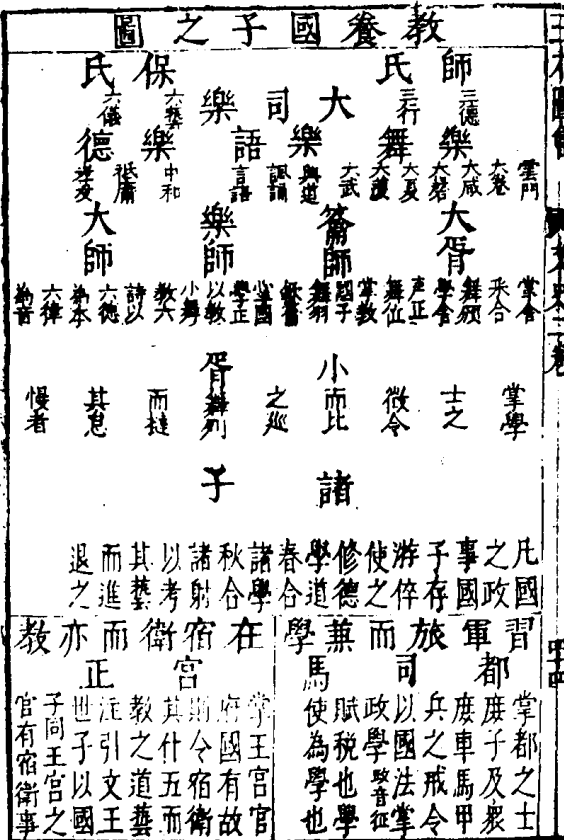 教養國子之圖
師氏
三德
三行
保氏
六藝
六儀
大司樂
樂舞
雲門
大卷
大咸
大磬
大夏
大濩
大武
樂語
興道
諷誦
言語
樂德
中和
祗庸
孝友
大胥
掌舍
采合
舞頒
學合
声正
舞位
籥師
掌教
國子
舞羽
龡籥
樂師
掌國
學正
以教
小舞
大師
教六
詩以
六德
為本
六律
為音
小胥
掌學
士之
徵令
而比
之廵
舞列
而撻
其怠
慢者
諸子
凡國
之政
事國
子存
游倅
使之
修德
學道
春合
諸學
秋合
諸射
以考
其藝
而進
退之
習軍旅而兼學
都司馬
掌都之士
庶子及衆
庶車馬甲
兵之戒令
以國法掌
政學政音征
賦稅也學
使為學也
在宿衛而亦教
宮正
掌王宮官
府國有故
則令宿衛
其什五而
教之道藝
注引文王
世子以國
子同王宮之
官有宿衛事